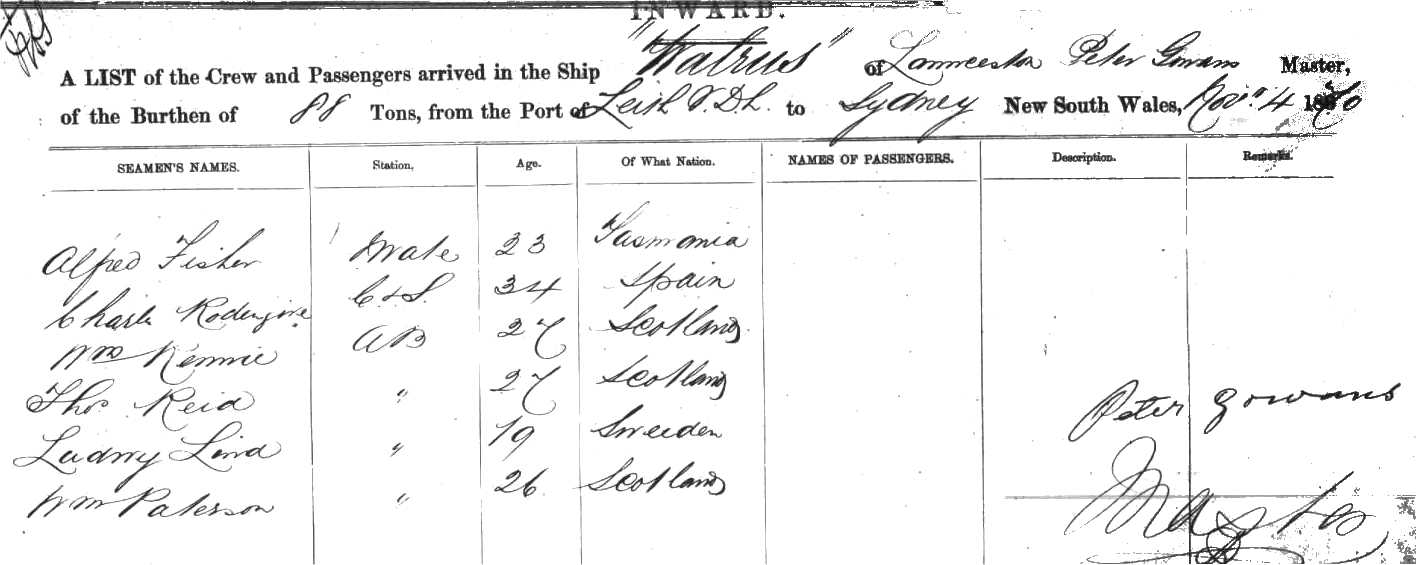 INWARD.
A LIST of the Crew and Passengers arrived in the Ship "Walrus" of Launceston Peter Gowans Master,
of the Burthen of 88 Tons, from the Port of Leith V.D.L. to Sydney New South Wales, Nov. 4 18
SEAMEN'S NAMES. Station. Age. Of What Nation. NAMES OF PASSENGERS. Description. Remarks.
Alfred Fisher Mate 23 Tasmania
Charles C & S. 34 Spain
Wm Rennie AB 27 Scotland
Thos Reid " 27 Scotland
Ludwig Lind " 19 Sweeden
Wm Paterson " 26 Scotland
Peter Gowans
Master